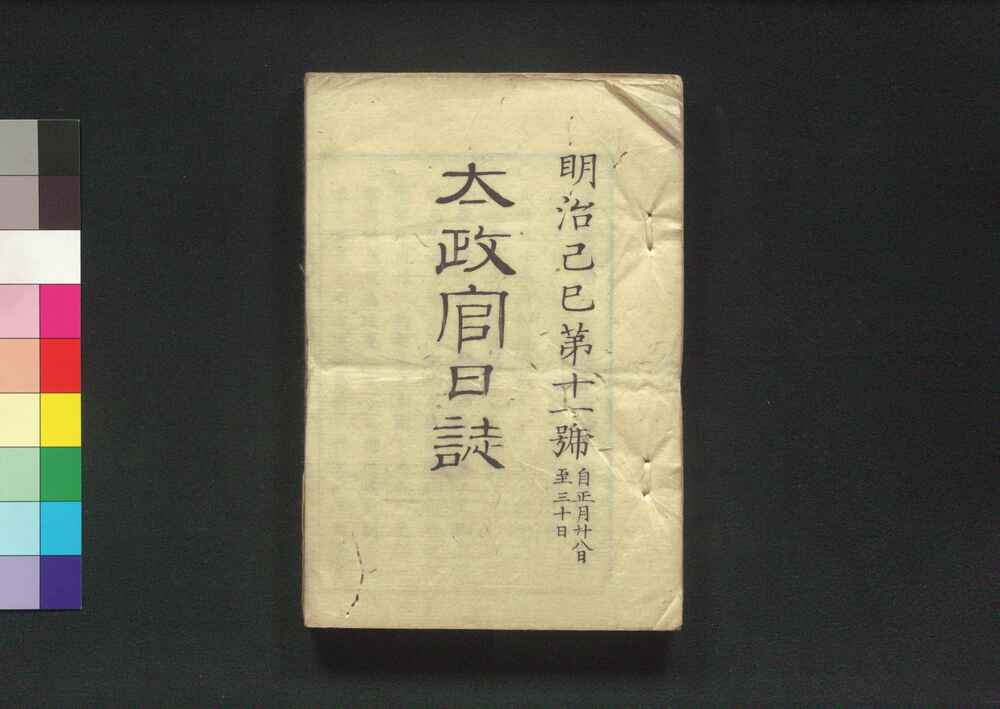 明治己巳第十一號
自正月廿八日
至三十日
太政官日誌